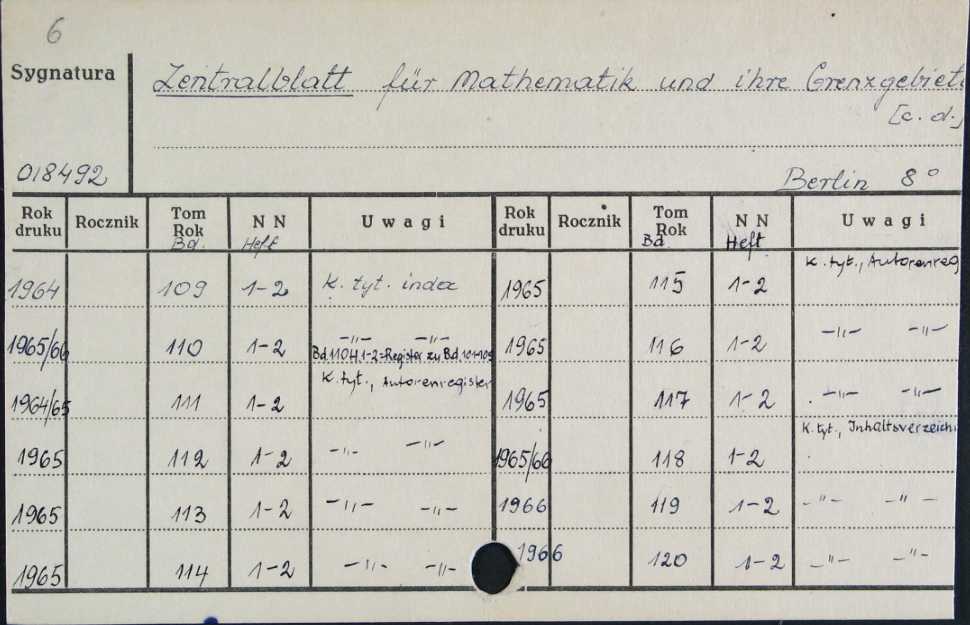 6
Sygnatura
Zentralblatt für Mathematik und ihre Grenzgebiete
[c. d.]
018492
Berlin 8°
Rok druku Rocznik Tom Rok Bd. N N Heft Uwagi Rok druku Rocznik Tom Rok Bd N N Heft Uwagi
1964 109 1-2 K. tyt. index 1965 115 1-2 K. tyt., Autorenreg
1965/66 110 1-2 -"- -"- 1965 116 1-2 -"- -"-
Bd 110 H 1-2=Register zu Bd. 101-109
1964/65 111 1-2 K. tyt., Autorenregister 1965 117 1-2 -"- -"-
1965 112 1-2 -"- -"- 1965/66 118 1-2 K. tyt., Inhaltsverzeichn
1965 113 1-2 -"- -"- 1966 119 1-2 -"- -"-
1965 114 1-2 -"- -"- 1966 120 1-2 -"- -"-